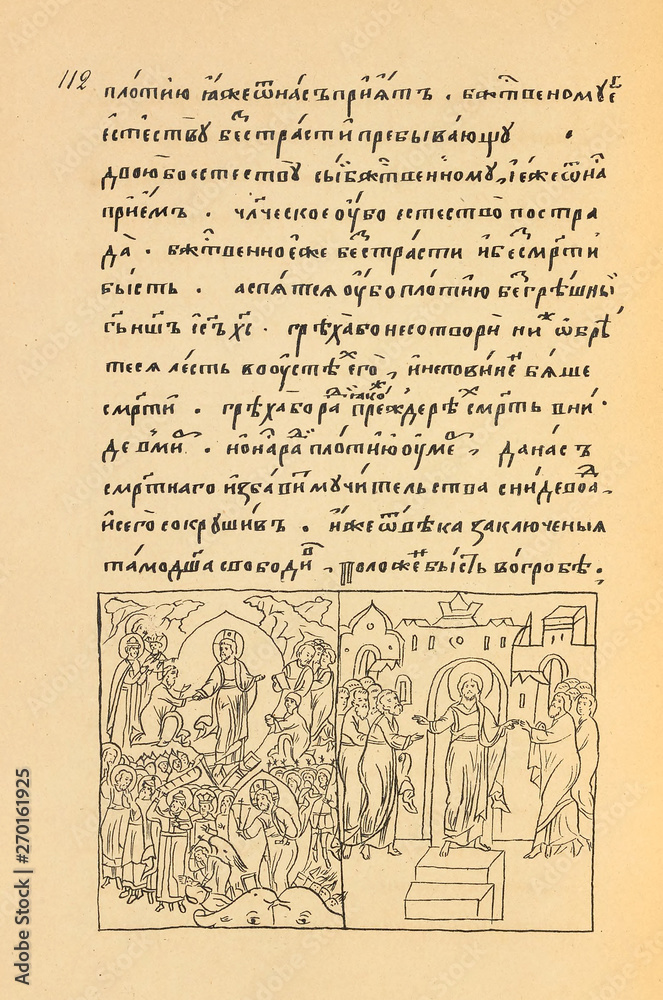 112
плотїю ꙗже ѿ насъ прїѧтъ . бжⷭ҇твеномꙋ
естествꙋ без̾страсти пребывающꙋ .
двою бо естествꙋ сы бжⷭ҇твенномꙋ, и еже ѿ на
прїемъ . члч҃еское ѹбо естество постра
да . бжⷭ҇твенное же бестрасти и бесмрт҃и
бысть . а спѧтсѧ ѹбо плотїю безгрѣшны
гь҃ нш҃ъ іс҃ъ хс҃ . грѣха бо не сотвори ни ѡбрѣ
тесѧ лесть во ѹстѣⷯ его , и неповинеⷩ҇ бѧше
смрт҃и . грѣха бо раⷣ ꙗкоⷤ преже рѣⷯ смрть вни
де в миⷬ . и на раⷣ плотїю ѹмреⷮ , да насъ
смрт҃наго избавиⷮ мꙋчительства сниде во аⷣ
и сего сокрꙋшивъ . и ꙗже ѿ вѣка заключеныѧ
тамо дш҃а свободиⷡ , положеⷩ҇ бысть во гробѣ .
Adobe Stock | 270161925
Adobe Stock